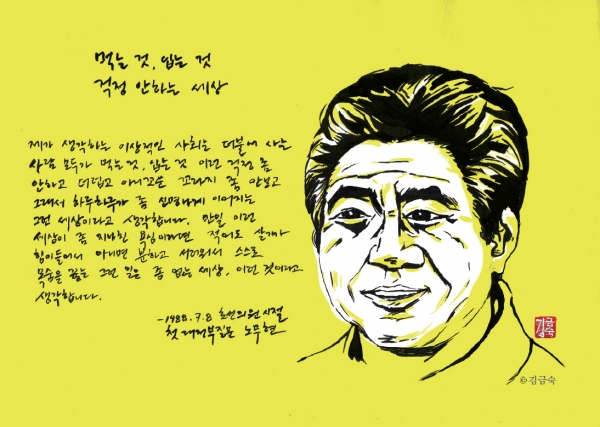 먹는 것, 입는 것
걱정 안하는 세상
제가 생각하는 이상적인 사회는 더불어 사는
사람 모두가 먹는 것, 입는 것 이런 걱정 좀
안하고 더럽고 아니꼬운 꼬라지 좀 안보고
그래서 하루하루가 좀 신명나게 이어지는
그런 세상이라고 생각합니다. 만일 이런
세상이 좀 지나친 욕심이라면 적어도 살기가
힘이들어서 아니면 분하고 서러워서 스스로
목숨을 끊는 그런 일은 좀 없는 세상. 이런 것이라고
생각합니다.
-1988.7.8 초선의원 시절
첫 대정부질문 노무현
김금숙
©김금숙